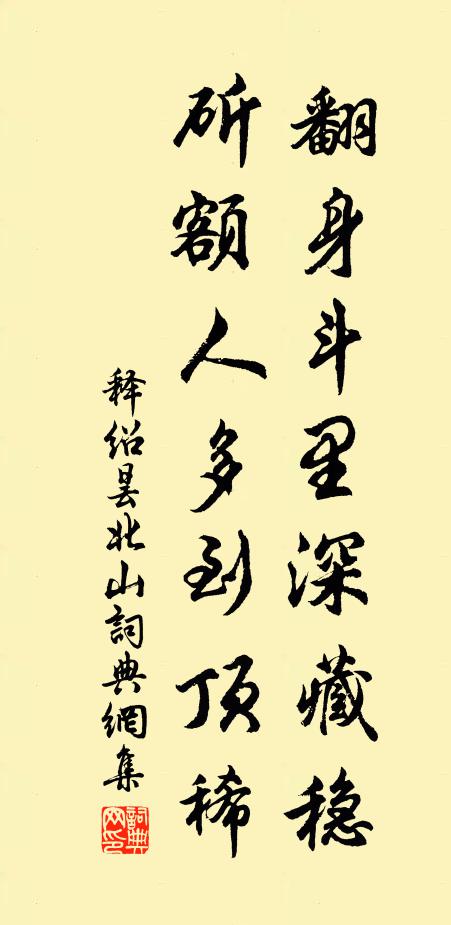 翻身斗里深藏稳
斫额人多到顶稀
释绍昙北山詞典網集
詞典網印